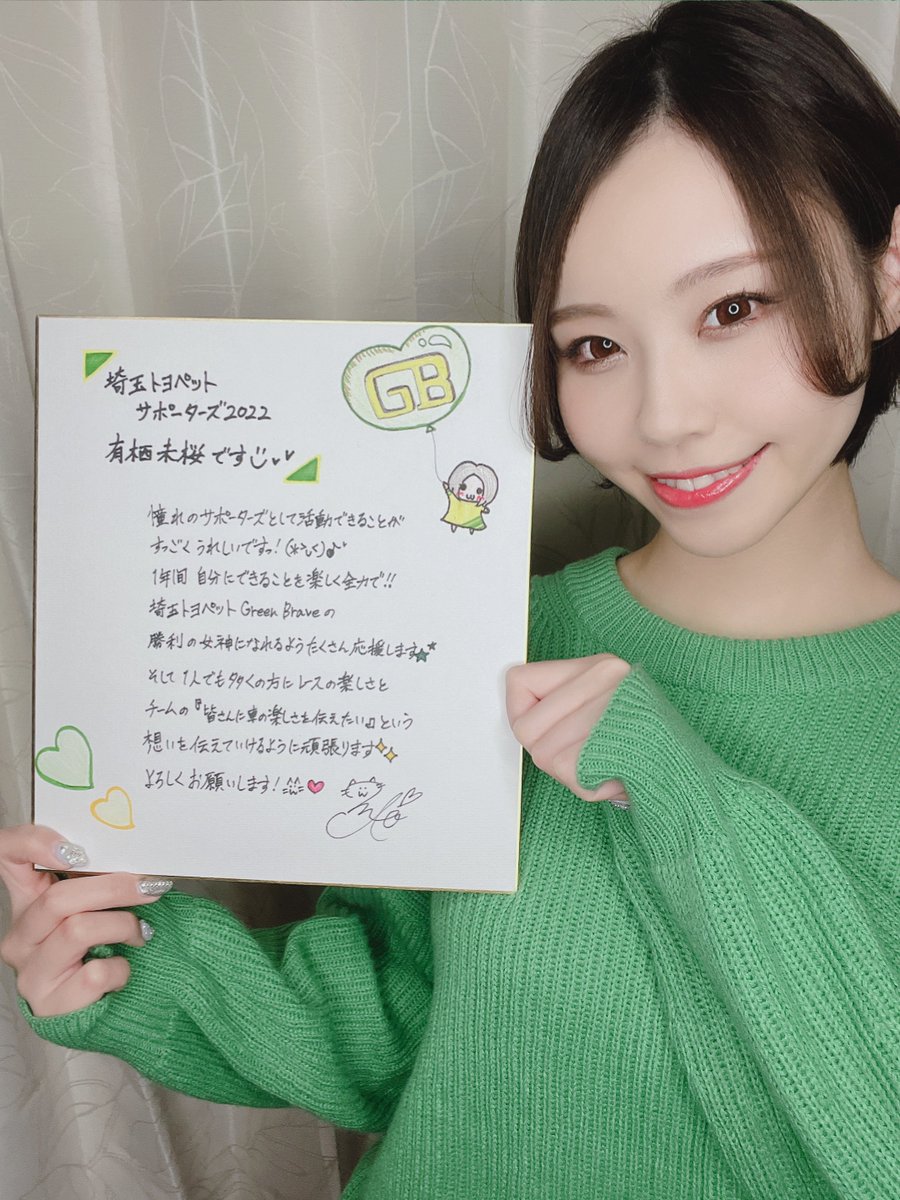 埼玉トヨペット
サポーターズ2022
有栖未桜です
GB
憧れのサポーターズとして活動できることが
すっごくうれしいですっ!
1年間 自分にできることを楽しく全力で!!
埼玉トヨペット Green Braveの
勝利の女神になれるようたくさん応援します
そして 1人でも多くの方にレースの楽しさと
チームの『皆さんに車の楽しさを伝えたい』という
想いを伝えていけるように頑張ります
よろしくお願いします!